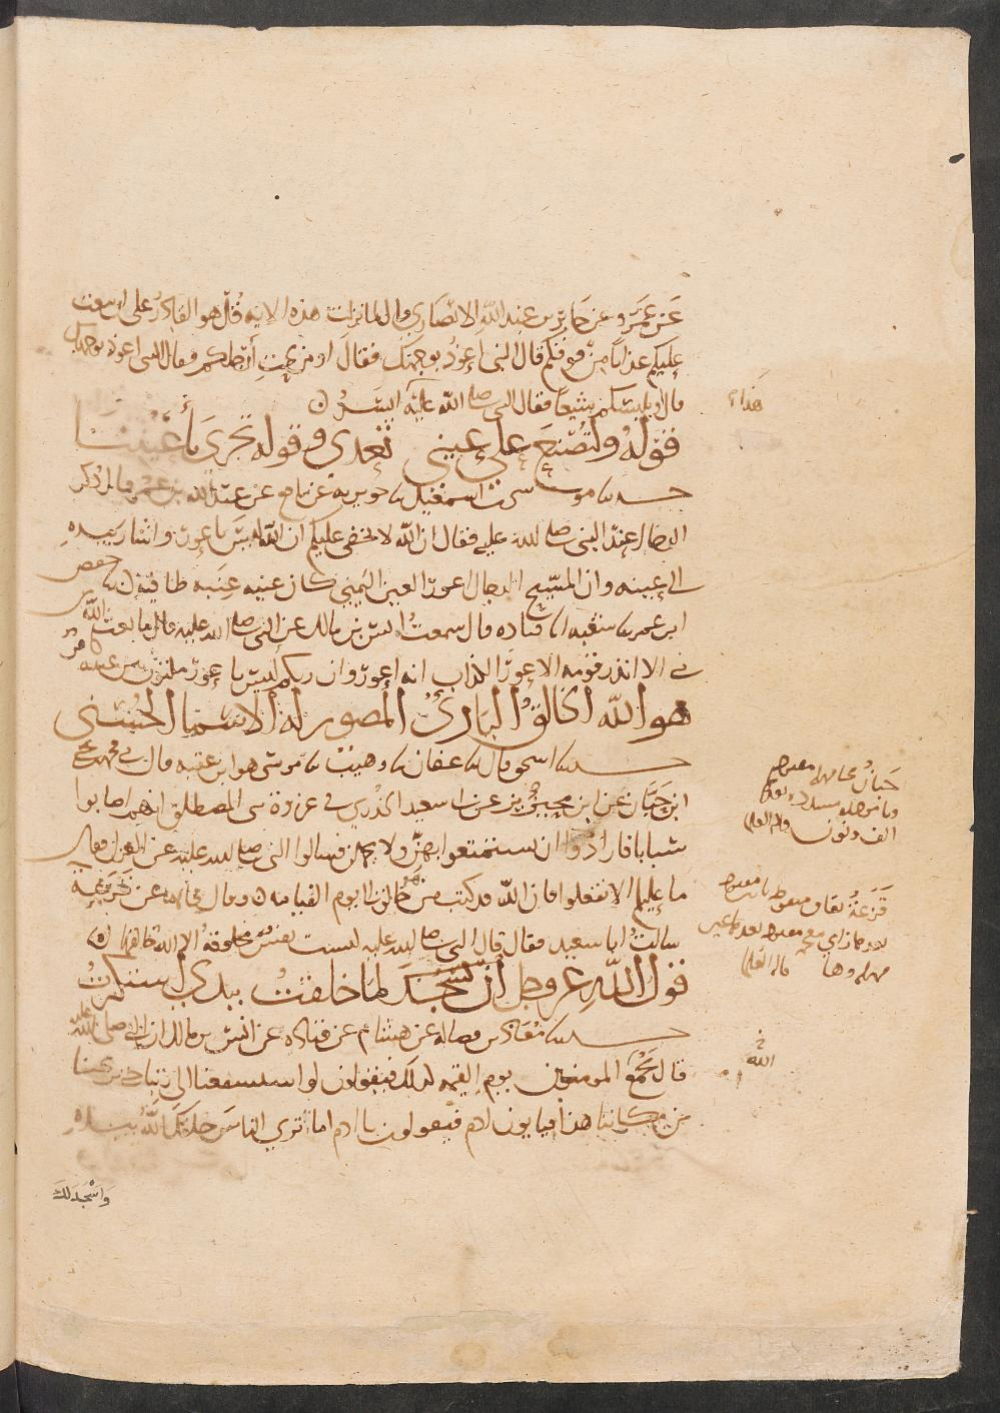 عن عمرو عن جابر بن عبد الله الانصاري قال لما نزلت هذه الايه قل هو القادر على ان يبعث
عليكم عذابا من فوقكم قال النبي اعوذ بوجهك فقال او من تحت أرجلكم فقال النبي اعوذ بوجهك
قال او يلبسكم شيعا فقال النبي صلى الله عليه ايسر
هذا
قوله ولتصنع على عيني تغذى وقوله تجري بأعيننا
حدثنا موسى بن اسمعيل نا جويرية عن نافع عن عبد الله بن عمر قال ذكر
الدجال عند النبي صلى الله عليه فقال ان الله لا يخفى عليكم ان الله ليس باعور واشار بيده
الى عينه وان المسيح الدجال اعور العين اليمنى كان عينه عنبه طافيه نا حفص بن
ابن عمر نا شعبه انا قتاده قال سمعت انس بن مالك عن النبي صلى الله عليه قال ما بعث الله
من نبي الا انذر قومه الاعور الكذاب انه اعور وان ربكم ليس باعور مكتوب بين عينيه كافر
هو الله الخالق البارئ المصور له الاسما الحسنى
حدثنا اسحق قال نا عفان نا وهيب نا موسى هو ابن عقبه قال ني محمد بن يحيى
ابن حبان عن ابن محيريز عن ابي سعيد الخدري في غزوة بني المصطلق انهم اصابوا
سبايا فارادوا ان يستمتعوا بهن ولا يحملن فسالوا النبي صلى الله عليه عن العزل فقال
ما عليكم الا تفعلوا فان الله قد كتب من هو خالق الى يوم القيامه وقال مجاهد عن قزعة
سالت ابا سعيد فقال قال النبي صلى الله عليه ليست نفس مخلوقة الا الله خالقها
حبان بحا مهملة مفتوحه
وبا موحده مشدده بعدها
الف ونون
قزعة بقاف مفتوحه
بعدها زاي معجمه مفتوحه بعدها عين
مهمله وها
قول الله عز وجل أن تسجد لما خلقت بيدي استكبرت
حدثنا معاذ بن فضاله عن هشام عن قتاده عن انس بن مالك ان النبي صلى الله عليه
قال يجمع المومنين يوم القيمه كذلك فيقولون لو استشفعنا الى ربنا حتى يريحنا
من مكاننا هذا فياتون ادم فيقولون يا ادم اما ترى الناس خلقك الله بيده
الله
واسجد لك